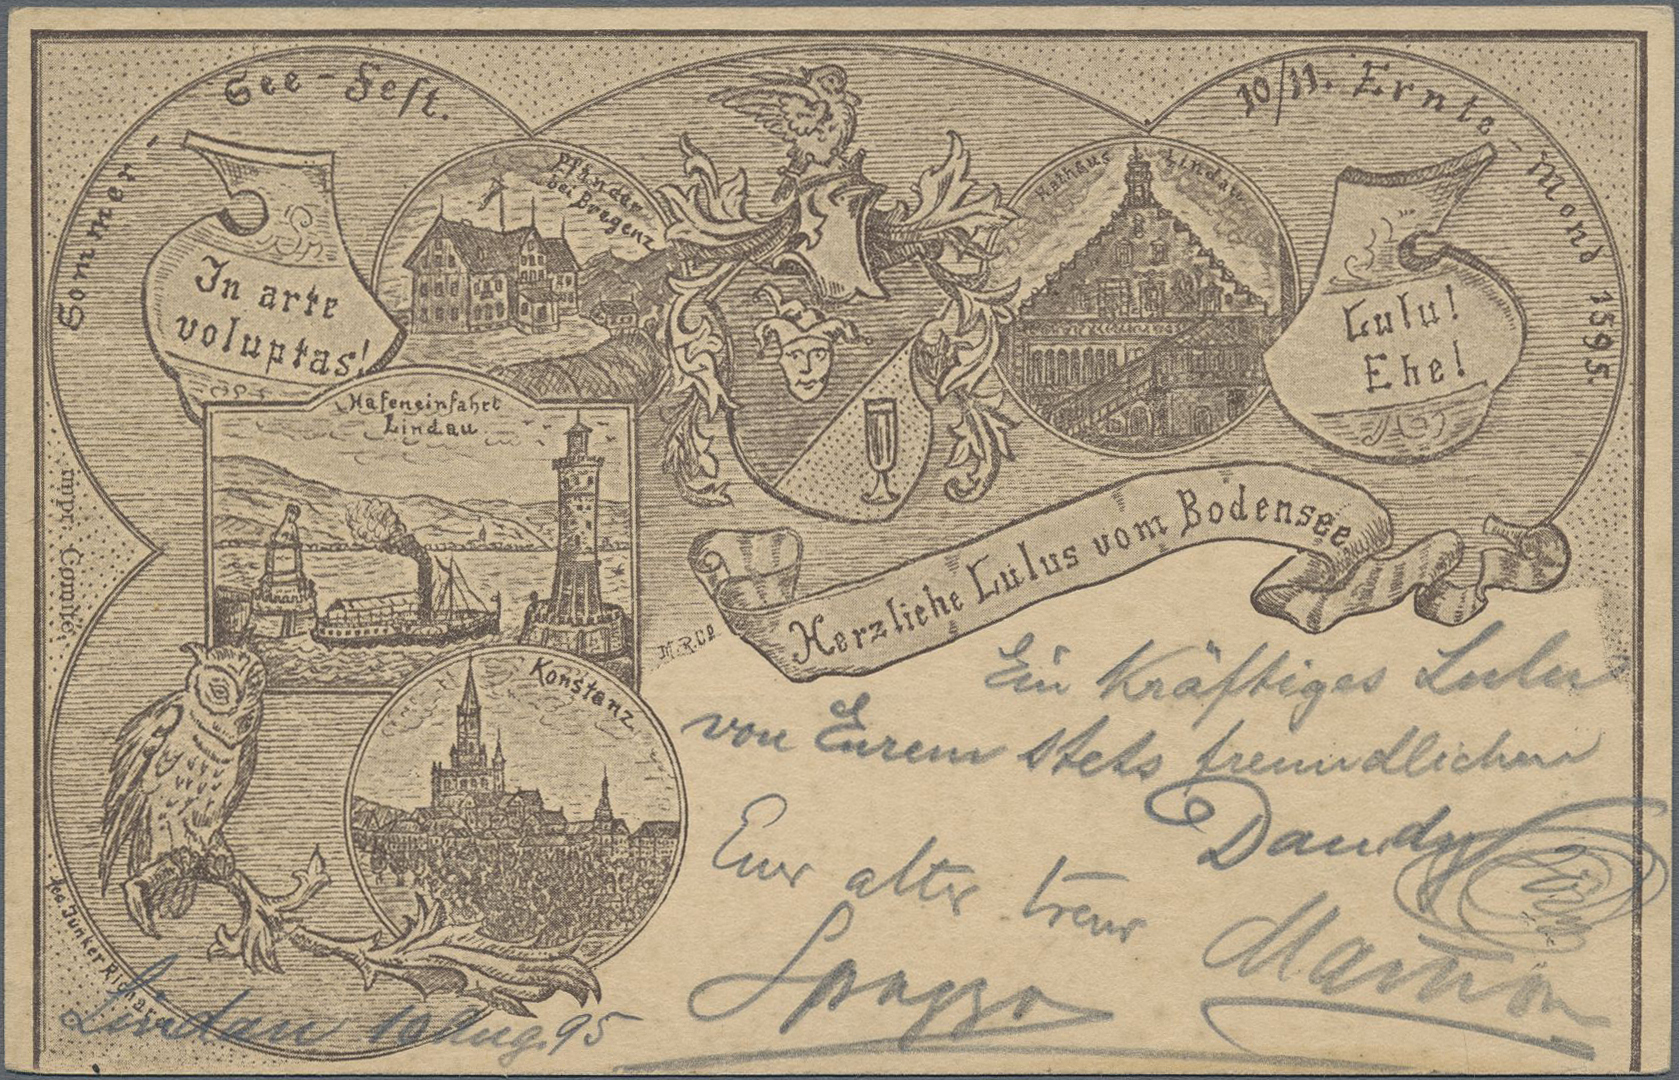 Sommer-See-Fest.
10/11. Ernte-Mond 1895.
In arte
voluptas!
Pfänder
bei Bregenz
Rathaus Lindau
Lulu!
Ehe!
Hafeneinfahrt
Lindau
Herzliche Lulus vom Bodensee
M.R.Co
Konstanz
impr. Comité.
Junker Richard
Ein kräftiges Lulu
von Eurem stets freundlichen
Dandy
Euer alter treuer
Lindau 10 Aug. 95